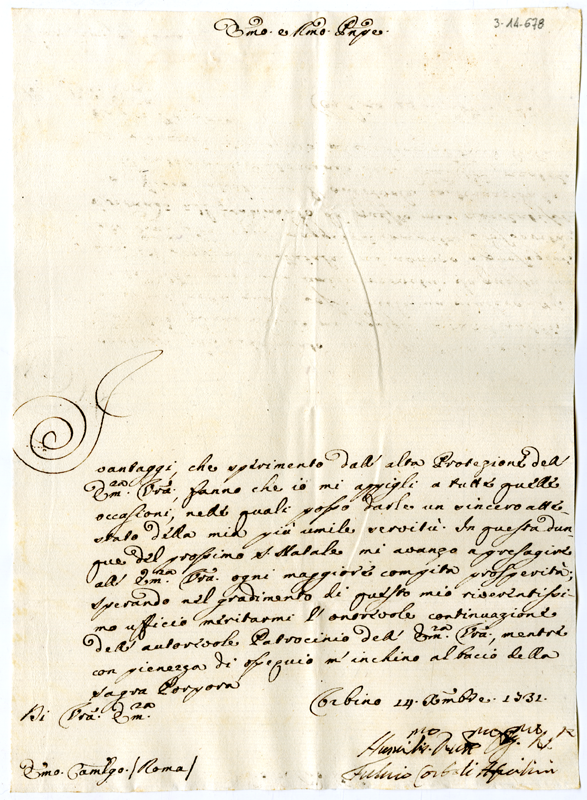 3-14-678
Emo. e Rmo. Pnpe.
I
vantaggi, che sperimento dall'alta Protezione dell'
Em.ᶻᵃ Vrã, fanno che io mi appigli a tutte quelle
occasioni, nelle quali posso darle un sincero atte-
stato della mia più umile servitù. In questa dun-
que del prossimo S. Natale mi avanzo a presagire
all' Em.ᶻᵃ Vrã. ogni maggiore compita prosperità;
sperando nel gradimento di questo mio riverentissi
mo ufficio meritarmi l'onorevole continuazione
dell'autorevole Patrocinio dell' Em.ᶻᵃ Vrã, mentre
con pienezza di ossequio m'inchino al bacio della
Sagra Porpora
Di Vrã. Em.ᶻᵃ
Urbino 14. Xmbre. 1731.
Humilᵐᵒ
Fulvio Corboli
Emo. Camlgo. /Roma/